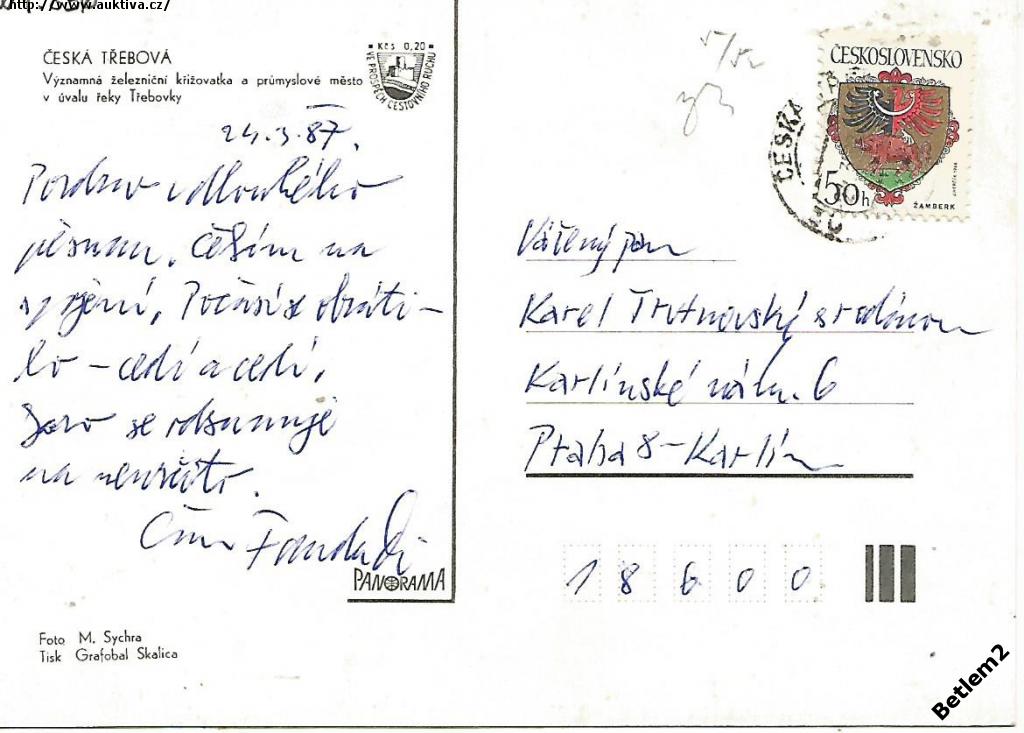 http://www.auktiva.cz/
ČESKÁ TŘEBOVÁ
Významná železniční křižovatka a průmyslové město
v úvalu řeky Třebovky
Kčs 0,20
VE PROSPĚCH CESTOVNÍHO RUCHU
24.3.87.
Pozdrav z dlouhého
týdnu. Těším na
spojení. Počasí se obráti-
lo - cedí a cedí,
Jaro se odsunuje
na neurčito.
Fanda
PANORAMA
Foto M. Sychra
Tisk Grafobal Skalica
ČESKOSLOVENSKO
50h
ŽAMBERK
ČESKÁ
Vážený pan
Karel Trutnovský s rodinou
Karlínské nám. 6
Praha 8-Karlín
18600
Betlem2